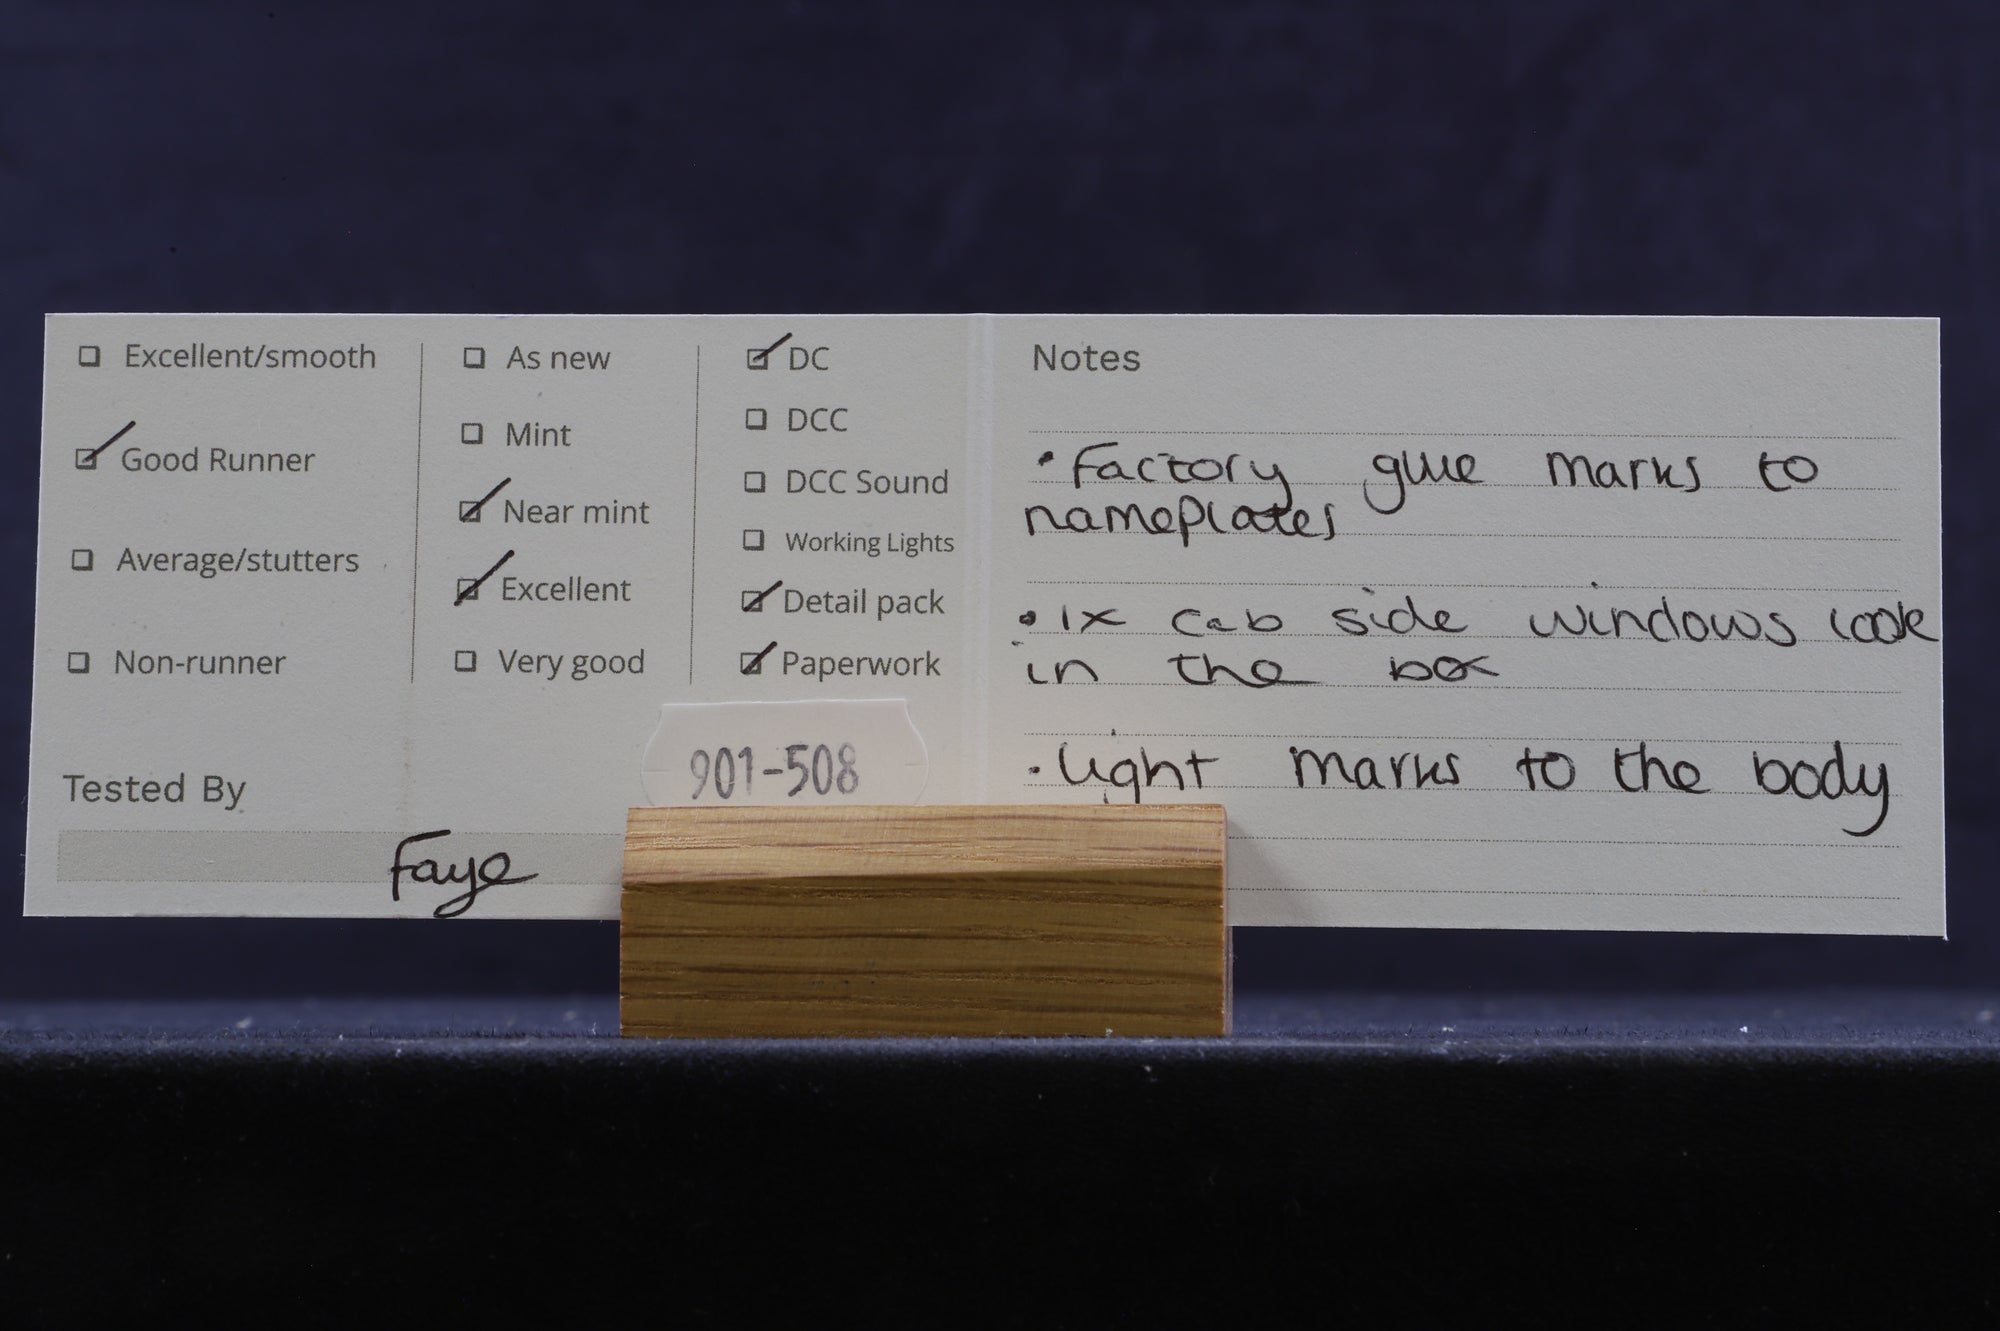 Excellent/smooth
Good Runner
Average/stutters
Non-runner
As new
Mint
Near mint
Excellent
Very good
DC
DCC
DCC Sound
Working Lights
Detail pack
Paperwork
901-508
Tested By
Faye
Notes
• Factory glue marks to
nameplates
• 1x cab side windows loose
in the box
• light marks to the body